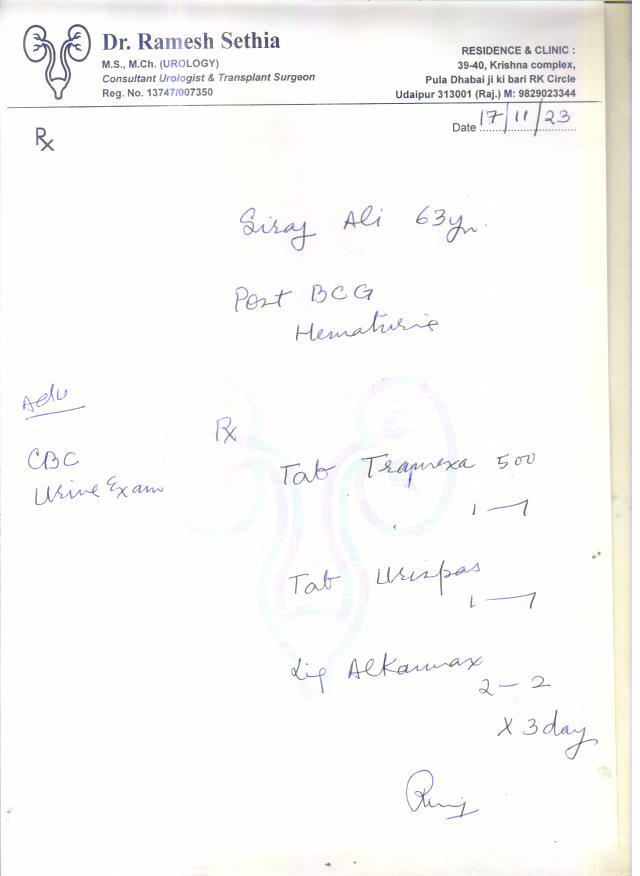 Dr. Ramesh Sethia
M.S., M.Ch. (UROLOGY)
Consultant Urologist & Transplant Surgeon
Reg. No. 13747/007350
RESIDENCE & CLINIC :
39-40, Krishna complex,
Pula Dhabai ji ki bari RK Circle
Udaipur 313001 (Raj.) M: 9829023344
Date 17/11/23
Rx
Siraj Ali 63yr.
Post BCG
Hematuria
Adv
CBC
Urine Exam
Rx
Tab Trapnexa 500
1—1
Tab Urispas
1—1
Liq Alkamax
2—2
X 3 day